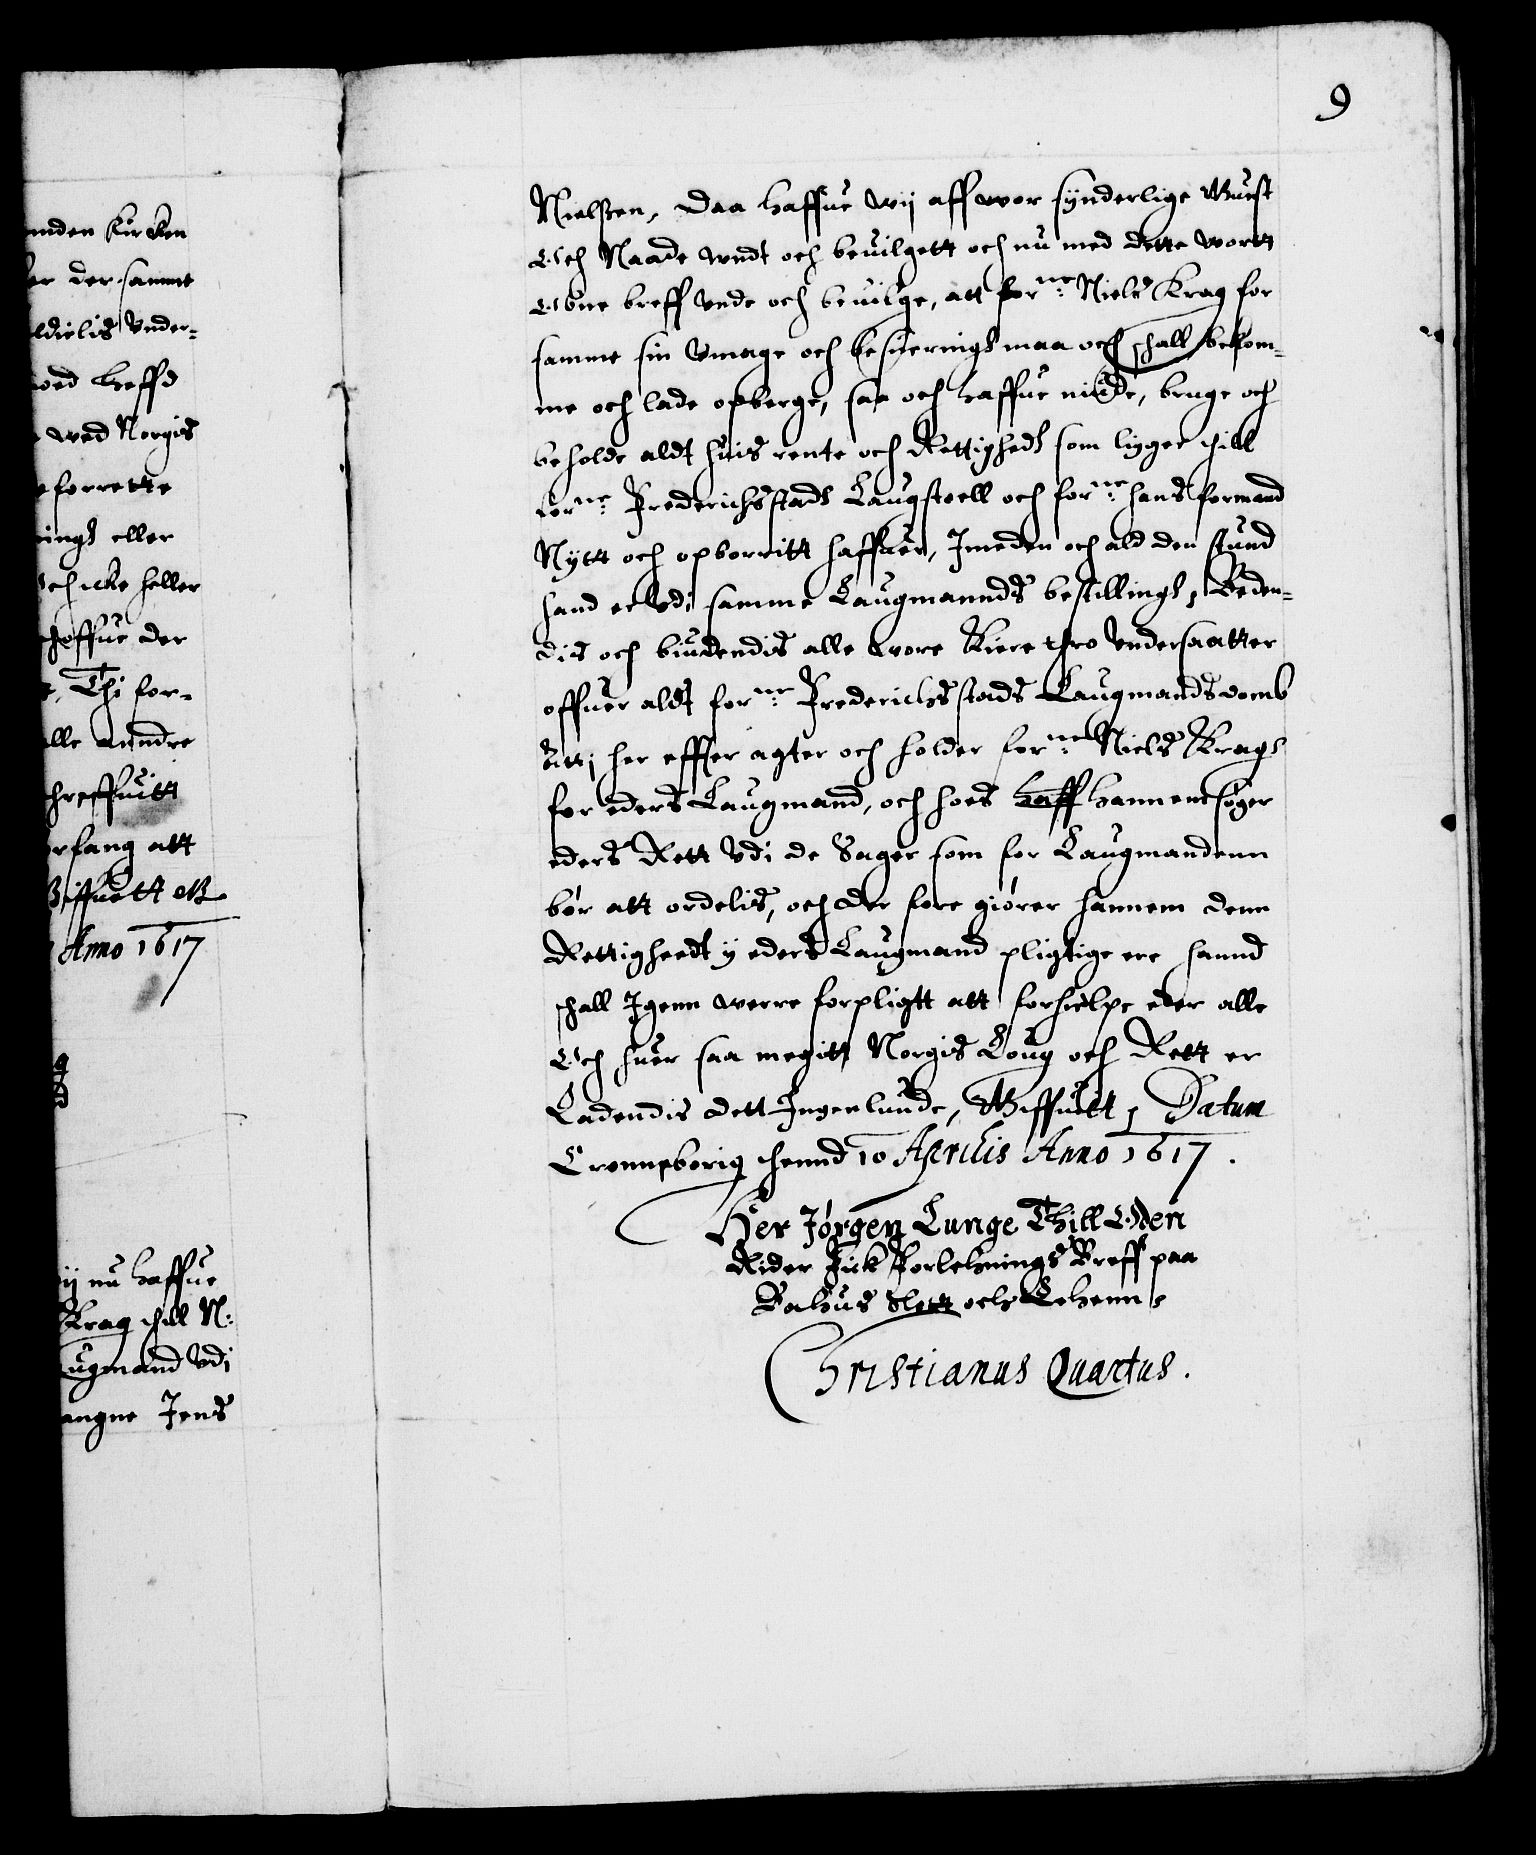 9
Nielsen, Daa haffue wij aff wor synderlige Gunst
Och Naade wndt och beuilgett och nu med dette wortt
Obne breff Vnde och beuilge, att forne: Niels Krag for
samme sin Vmage och besueringh maa och schall bekom-
me och lade opberge, saa och haffue niude, bruge och
beholde aldt huis rente och Rettighedt som ligger thill
forne: Frederichsstadt Laugstoell och forne: hans formand
Nytt och opborritt haffuer, Imeden och ald den stund
hand er Vdi samme Laugmannds bestilling, Beden-
dis och biudendis alle wore Kiere thro Vndersaatter
offuer aldt forne: Frederichsstads Laugmandsdomb
Att i her effter agter och holder forne: Niels Kragh
for eders Laugmand, och hoes haff hannem søger
eders Rett Vdi de Sager som for Laugmandenn
bør att ordelis, och der fore giører hannem denn
Rettigheedt ij eders Laugmand pligtige ere hannd
schall Igenn werre forpligtt att forhielpe eder alle
Och huer saa megitt Norgis Loug och Rett er
Ladendis dett Ingenlunde, Giffuett, Datum
Cronneborig thennd 10 Aprilis Anno 1617.
Her Jørgen Lunge Thill Odden
Rider Fick Forlehnings Breff paa
Bahus Slott och Lehenn
Christianus Quartus.
inden Kircken
er der samme
ldielis Vnder-
oed heffd
wed Norgis
forrette
ingh eller
Och icke heller
hoffue der
Thi for-
alle anndre
schreffuitt
orfang att
Giffuett etc.
Anno 1617
ij nu haffue
Krag thill N:
Laugmand Vdi
gangne Jens